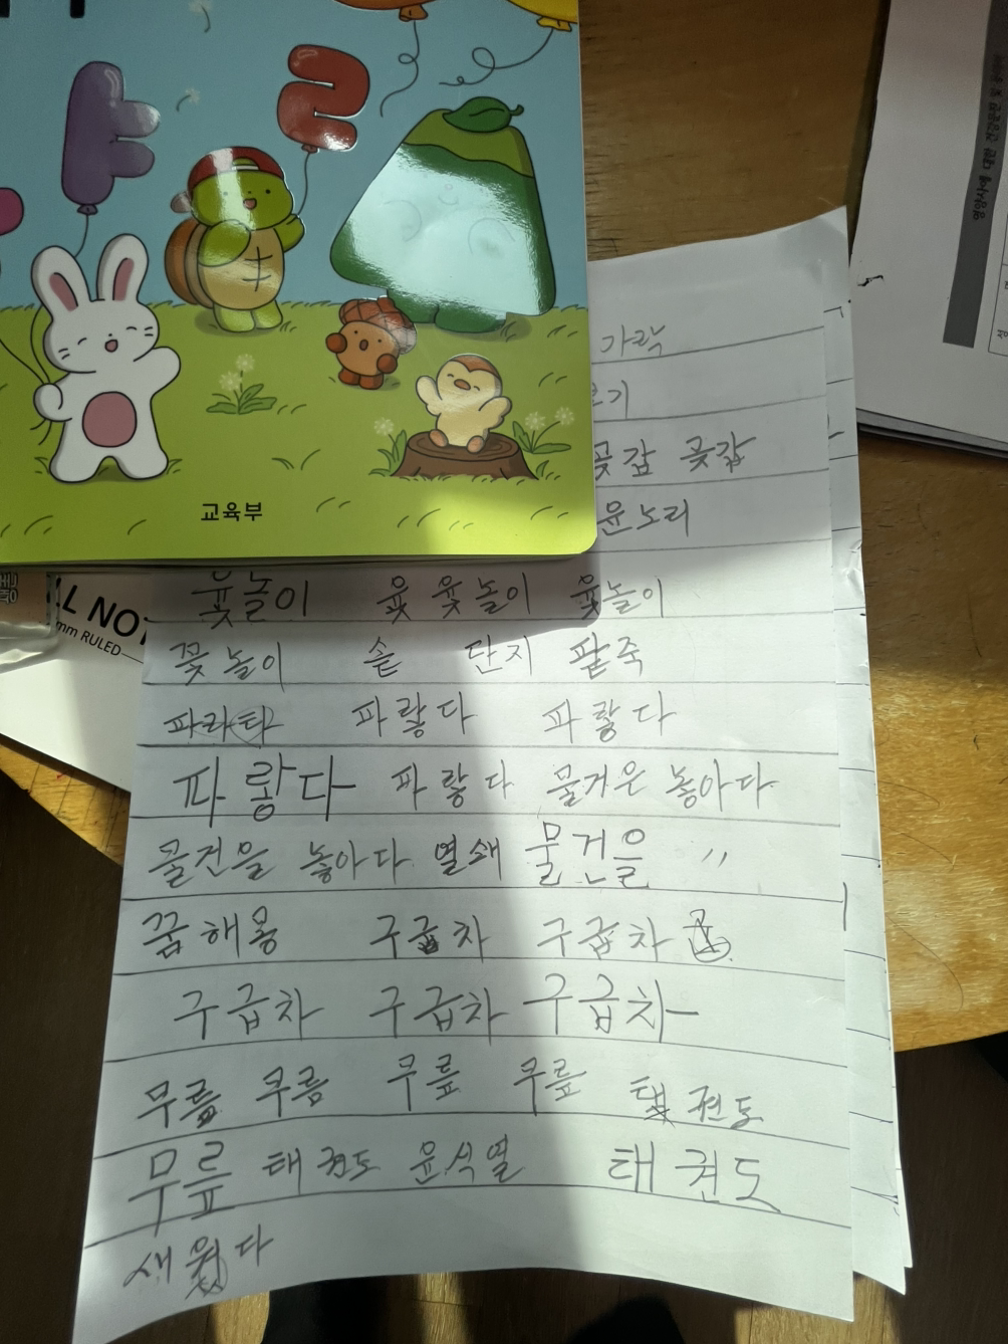 ㅏ
ㄹ
교육부
LL NOT
mm RULED
가락
보기
곶감 곶감
윤노리
윷놀이 윷 윷놀이 윷놀이
꽃놀이 솥 단지 팥죽
파라타 파랗다 파랗다
파랗다 파랗다 물거은 놓아다
물건을 놓아다 열쇄 물건을 〃
꿈해몽 구급차 구급차
구급차 구급차 구급차
무릎 무름 무릎 무릎 태권도
무릎 태권도 윤석열 태권도
새웠다